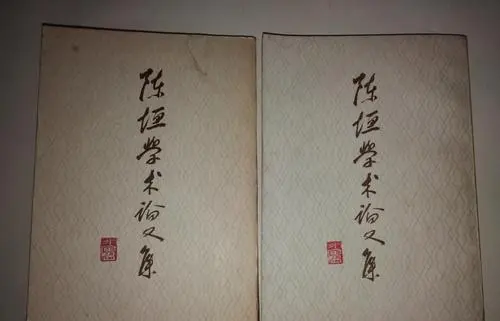 陈垣学术论文集
陈垣学术论文集